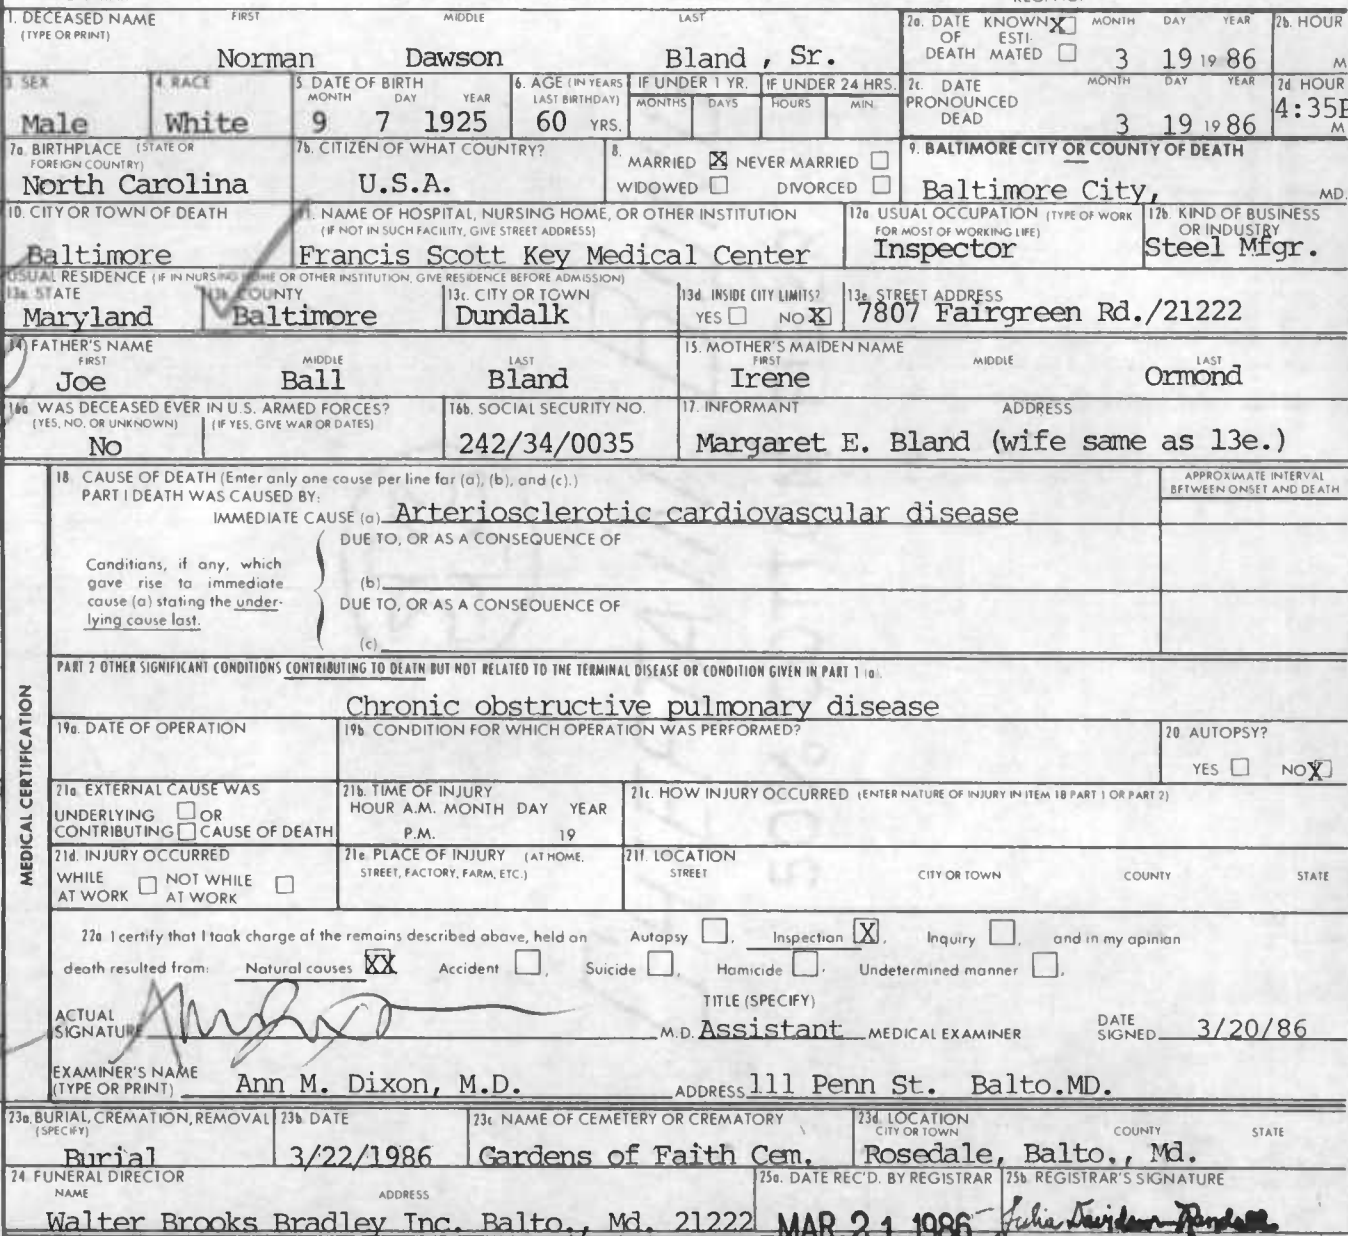 1. DECEASED NAME FIRST MIDDLE LAST
(TYPE OR PRINT)
Norman Dawson Bland, Sr.
2a. DATE KNOWN X MONTH DAY YEAR
OF ESTI-
DEATH MATED
3 19 19 86
2b. HOUR
M
3. SEX
Male
4. RACE
White
5. DATE OF BIRTH
MONTH DAY YEAR
9 7 1925
6. AGE (IN YEARS
LAST BIRTHDAY)
60 YRS.
IF UNDER 1 YR.
MONTHS DAYS
IF UNDER 24 HRS.
HOURS MIN.
2c. DATE MONTH DAY YEAR
PRONOUNCED
DEAD
3 19 19 86
2d HOUR
4:35P
M
7a. BIRTHPLACE (STATE OR
FOREIGN COUNTRY)
North Carolina
7b. CITIZEN OF WHAT COUNTRY?
U.S.A.
8.
MARRIED X NEVER MARRIED
WIDOWED DIVORCED
9. BALTIMORE CITY OR COUNTY OF DEATH
Baltimore City, MD.
10. CITY OR TOWN OF DEATH
Baltimore
11. NAME OF HOSPITAL, NURSING HOME, OR OTHER INSTITUTION
(IF NOT IN SUCH FACILITY, GIVE STREET ADDRESS)
Francis Scott Key Medical Center
12a USUAL OCCUPATION (TYPE OF WORK
FOR MOST OF WORKING LIFE)
Inspector
12b. KIND OF BUSINESS
OR INDUSTRY
Steel Mfgr.
USUAL RESIDENCE (IF IN NURSING HOME OR OTHER INSTITUTION, GIVE RESIDENCE BEFORE ADMISSION)
13a. STATE
Maryland
13b. COUNTY
Baltimore
13c. CITY OR TOWN
Dundalk
13d. INSIDE CITY LIMITS?
YES NO X
13e. STREET ADDRESS
7807 Fairgreen Rd./21222
14 FATHER'S NAME
FIRST MIDDLE LAST
Joe Ball Bland
15. MOTHER'S MAIDEN NAME
FIRST MIDDLE LAST
Irene Ormond
16a WAS DECEASED EVER IN U.S. ARMED FORCES?
(YES, NO, OR UNKNOWN) (IF YES, GIVE WAR OR DATES)
No
16b. SOCIAL SECURITY NO.
242/34/0035
17. INFORMANT ADDRESS
Margaret E. Bland (wife same as 13e.)
MEDICAL CERTIFICATION
18. CAUSE OF DEATH (Enter only one cause per line for (a), (b), and (c).)
PART I DEATH WAS CAUSED BY:
APPROXIMATE INTERVAL
BETWEEN ONSET AND DEATH
IMMEDIATE CAUSE (a) Arteriosclerotic cardiovascular disease
DUE TO, OR AS A CONSEQUENCE OF
Conditions, if any, which
gave rise to immediate
cause (a) stating the under-
lying cause last.
(b)
DUE TO, OR AS A CONSEQUENCE OF
(c)
PART 2 OTHER SIGNIFICANT CONDITIONS CONTRIBUTING TO DEATH BUT NOT RELATED TO THE TERMINAL DISEASE OR CONDITION GIVEN IN PART 1 (a).
Chronic obstructive pulmonary disease
19a. DATE OF OPERATION
19b. CONDITION FOR WHICH OPERATION WAS PERFORMED?
20 AUTOPSY?
YES NO X
21a. EXTERNAL CAUSE WAS
UNDERLYING OR
CONTRIBUTING CAUSE OF DEATH
21b. TIME OF INJURY
HOUR A.M. MONTH DAY YEAR
P.M. 19
21c. HOW INJURY OCCURRED (ENTER NATURE OF INJURY IN ITEM 18 PART 1 OR PART 2)
21d. INJURY OCCURRED
WHILE NOT WHILE
AT WORK AT WORK
21e. PLACE OF INJURY (AT HOME,
STREET, FACTORY, FARM, ETC.)
21f. LOCATION
STREET CITY OR TOWN COUNTY STATE
22a I certify that I took charge of the remains described above, held an Autopsy, Inspection X, Inquiry, and in my opinion
death resulted from: Natural causes XX Accident, Suicide, Homicide, Undetermined manner.
ACTUAL
SIGNATURE
M.D. Assistant MEDICAL EXAMINER
TITLE (SPECIFY)
DATE
SIGNED 3/20/86
EXAMINER'S NAME
(TYPE OR PRINT) Ann M. Dixon, M.D. ADDRESS 111 Penn St. Balto.MD.
23a. BURIAL, CREMATION, REMOVAL
(SPECIFY)
Burial
23b. DATE
3/22/1986
23c. NAME OF CEMETERY OR CREMATORY
Gardens of Faith Cem.
23d. LOCATION
CITY OR TOWN COUNTY STATE
Rosedale, Balto., Md.
24 FUNERAL DIRECTOR
NAME ADDRESS
Walter Brooks Bradley Inc. Balto., Md. 21222
25a. DATE REC'D. BY REGISTRAR
MAR 21 1986
25b. REGISTRAR'S SIGNATURE
Julia Davidson Randall